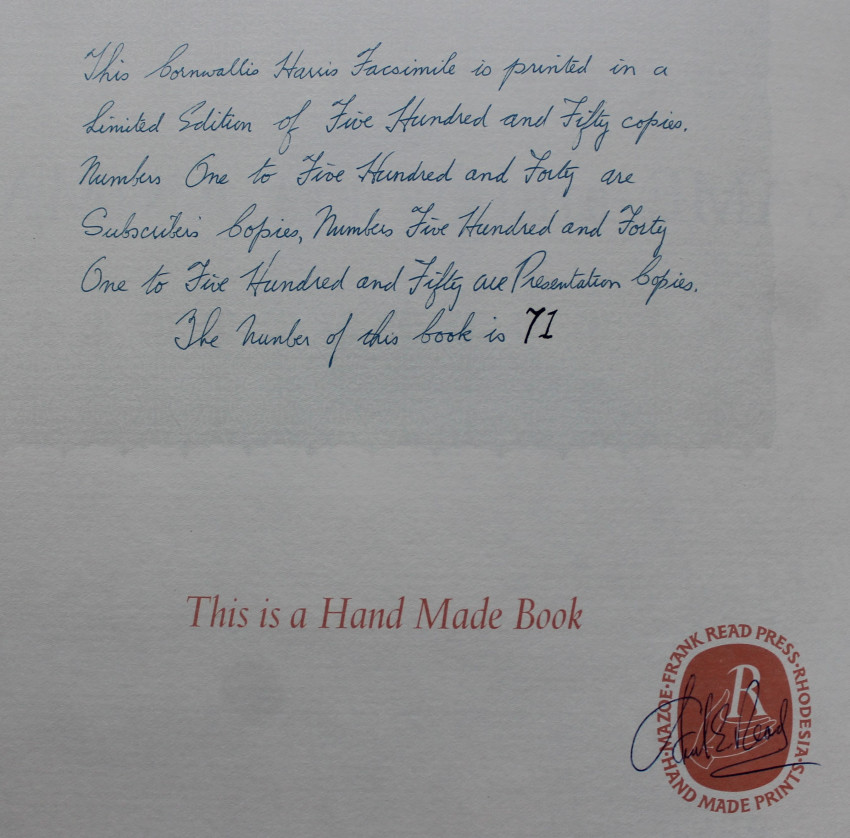 This Cornwallis Harris Facsimile is printed in a
Limited Edition of Five Hundred and Fifty copies.
Numbers One to Five Hundred and Forty are
Subscriber's Copies, Numbers Five Hundred and Forty
One to Five Hundred and Fifty are Presentation Copies.
The Number of this book is 71
This is a Hand Made Book
MAZOE · FRANK READ PRESS · RHODESIA
R
Frank E. Read
HAND MADE PRINTS